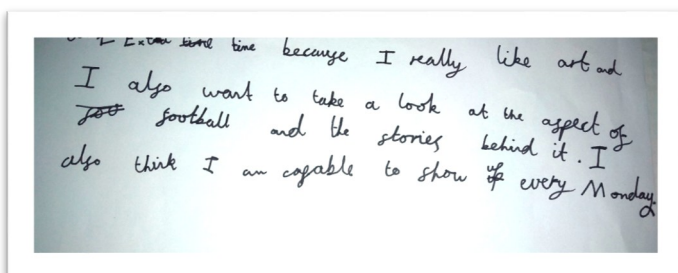 Extra time because I really like art and
I also want to take a look at the aspect of
football and the stories behind it. I
also think I am capable to show up every Monday